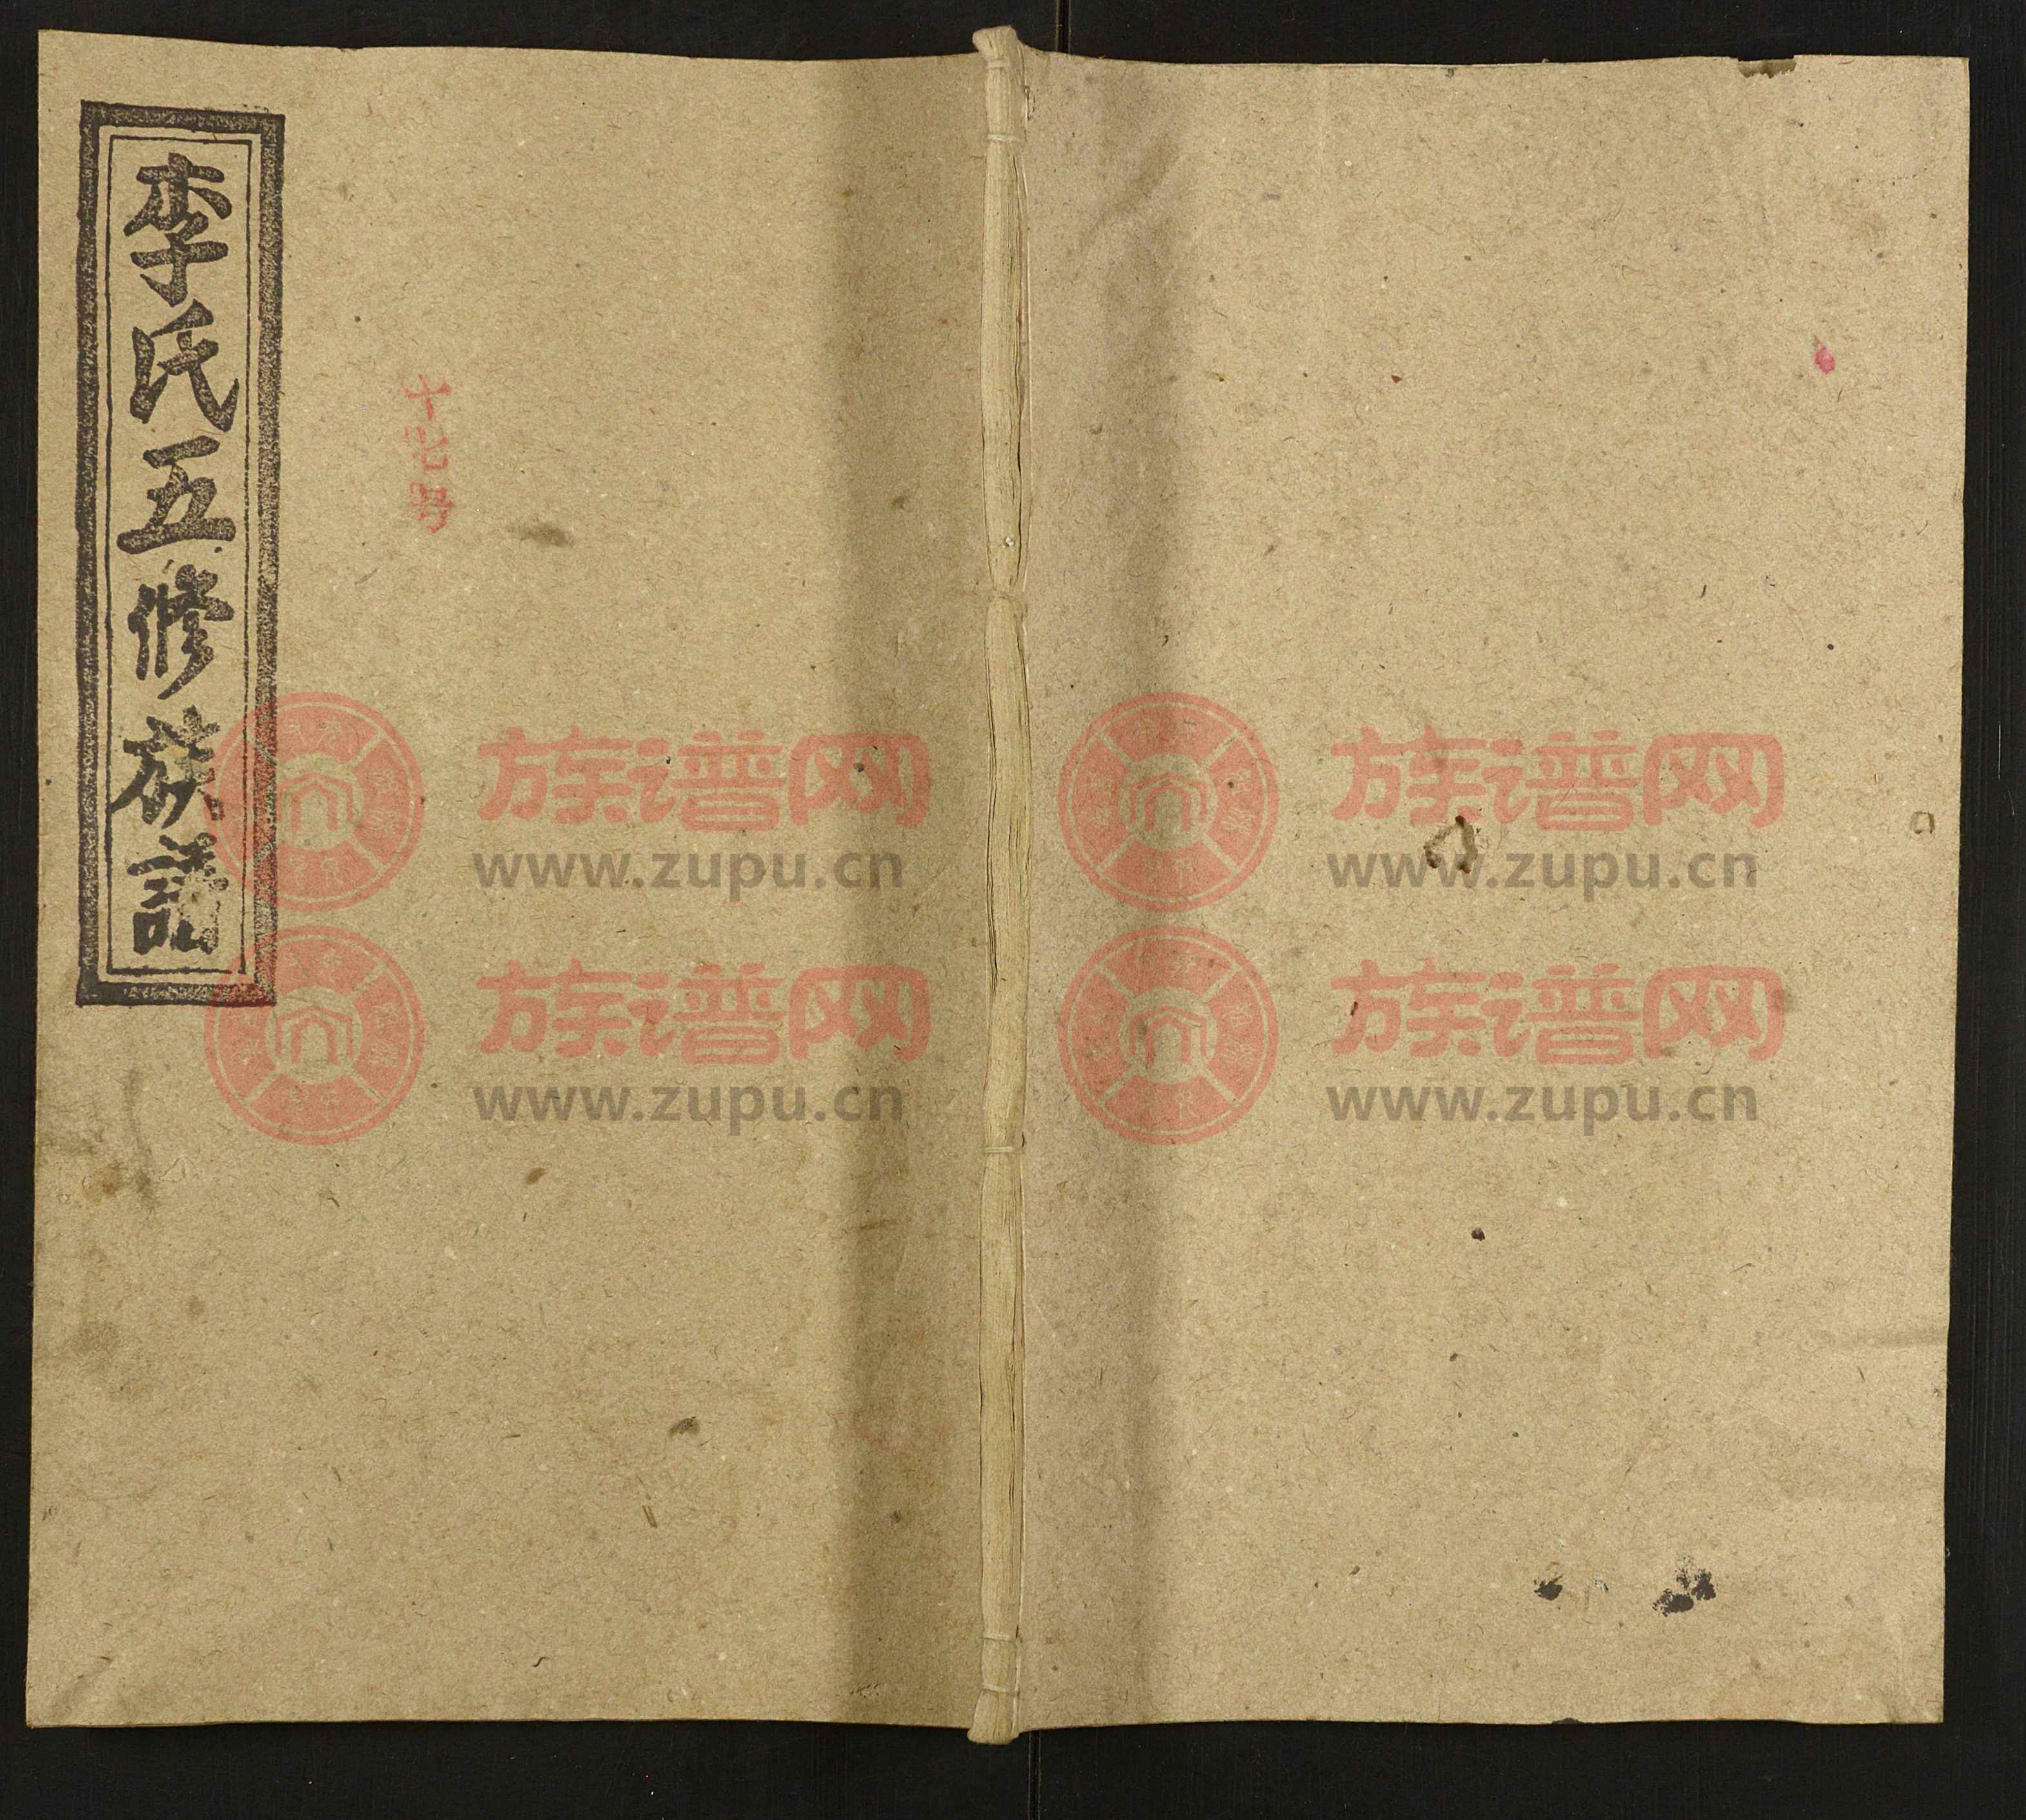 李氏五修族譜
十七号
族谱网
www.zupu.cn
族谱网
www.zupu.cn
族谱网
www.zupu.cn
族谱网
www.zupu.cn